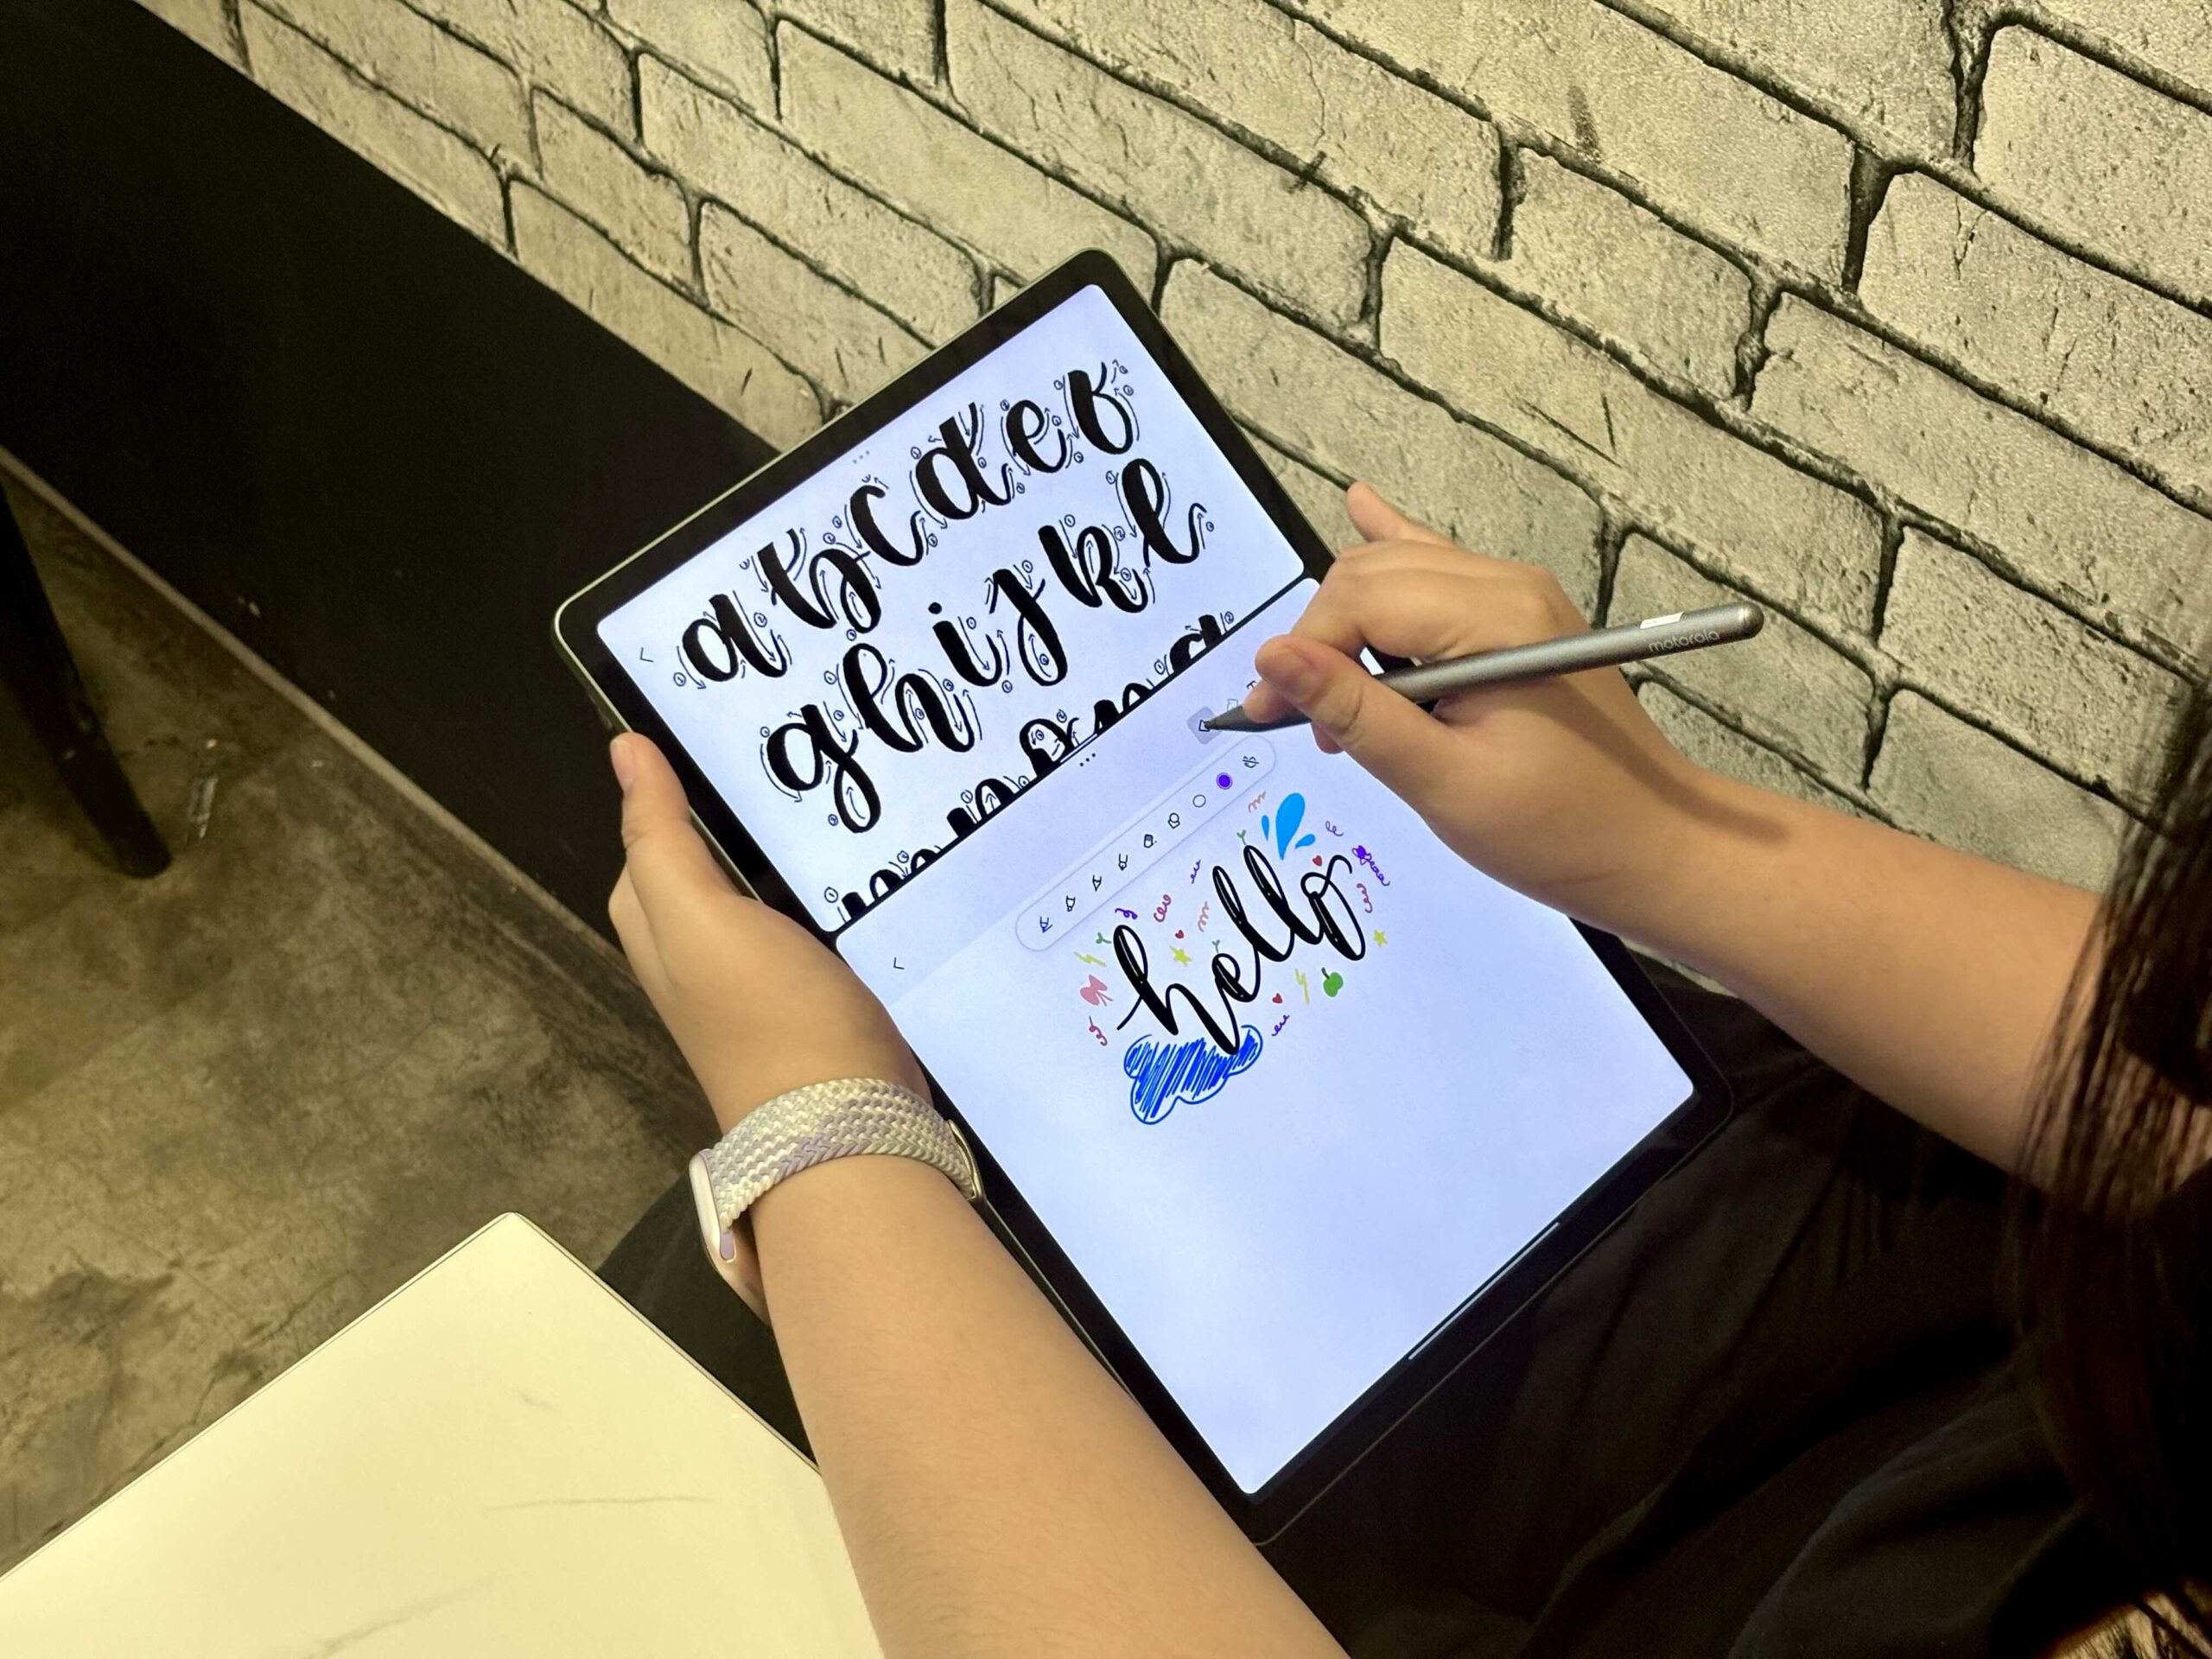 a b c d e f
g h i j k l
hello
motorola